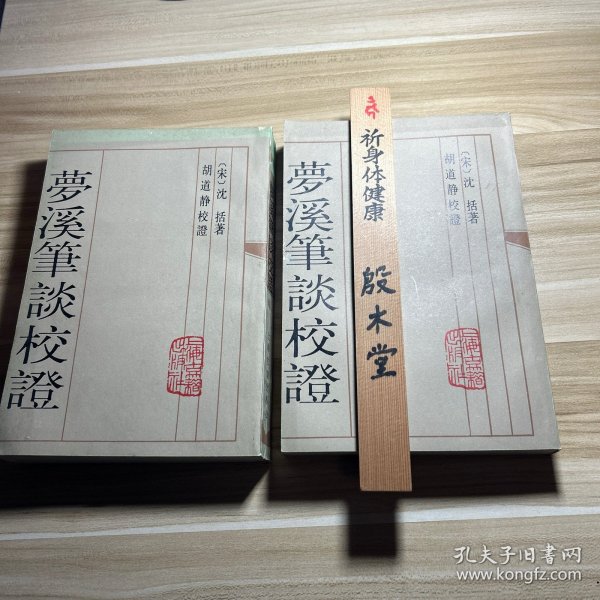 夢溪筆談校證
〔宋〕沈括著
胡道静校證
夢溪筆談校證
〔宋〕沈括著
胡道静校證
祈身体健康
殷木堂
孔夫子旧书网
www.kongfz.com